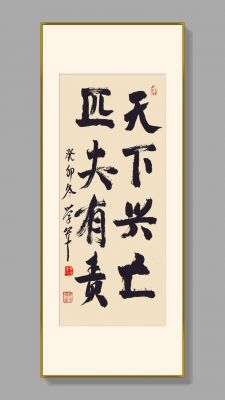 天下兴亡
匹夫有责
癸卯冬